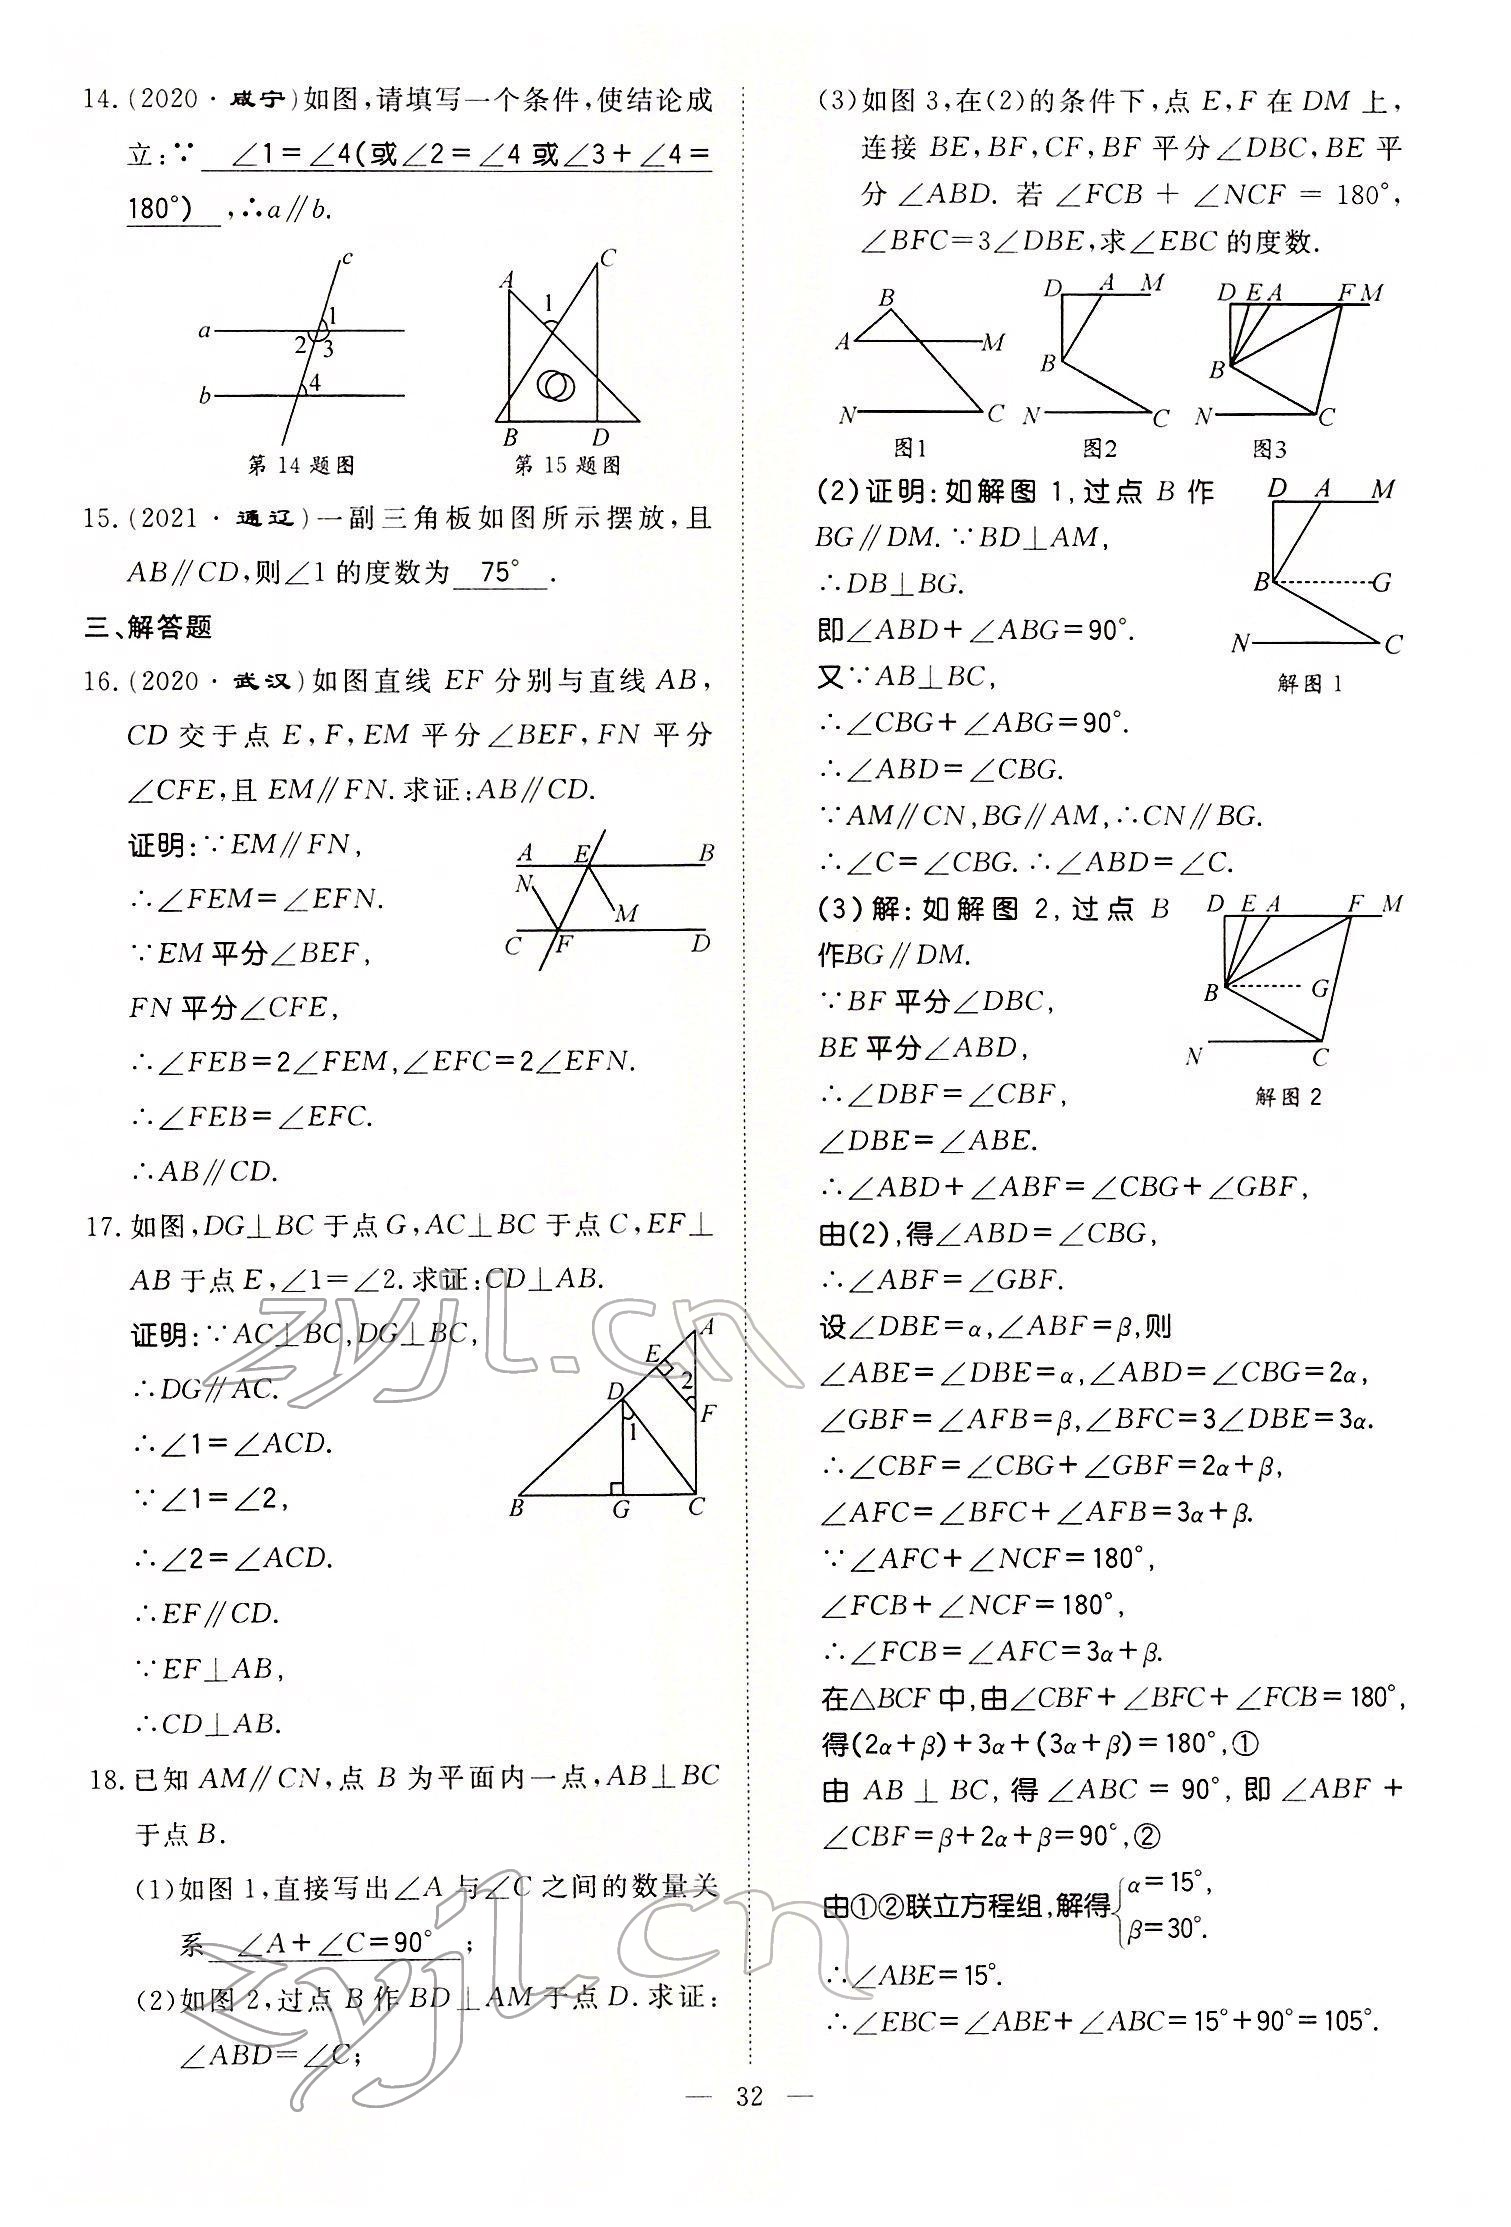 14.(2020·咸宁)如图,请填写一个条件,使结论成
立:∵ ∠1=∠4(或∠2=∠4或∠3+∠4=
180°) ,∴a∥b.
c
a
1
2
3
b
4
第14题图
A
C
1
B
D
第15题图
15.(2021·通辽)一副三角板如图所示摆放,且
AB∥CD,则∠1的度数为 75° .
三、解答题
16.(2020·武汉)如图直线EF分别与直线AB,
CD交于点E,F,EM平分∠BEF,FN平分
∠CFE,且EM∥FN.求证:AB∥CD.
证明:∵EM∥FN,
∴∠FEM=∠EFN.
∵EM平分∠BEF,
FN平分∠CFE,
∴∠FEB=2∠FEM,∠EFC=2∠EFN.
∴∠FEB=∠EFC.
∴AB∥CD.
A E B
N
M
C F D
17.如图,DG⊥BC于点G,AC⊥BC于点C,EF⊥
AB于点E,∠1=∠2.求证:CD⊥AB.
证明:∵AC⊥BC,DG⊥BC,
∴DG∥AC.
∴∠1=∠ACD.
∵∠1=∠2,
∴∠2=∠ACD.
∴EF∥CD.
∵EF⊥AB,
∴CD⊥AB.
A
E
D
2
F
1
B G C
18.已知AM∥CN,点B为平面内一点,AB⊥BC
于点B.
(1)如图1,直接写出∠A与∠C之间的数量关
系 ∠A+∠C=90° ;
(2)如图2,过点B作BD⊥AM于点D.求证:
∠ABD=∠C;
(3)如图3,在(2)的条件下,点E,F在DM上,
连接BE,BF,CF,BF平分∠DBC,BE平
分∠ABD.若∠FCB+∠NCF=180°,
∠BFC=3∠DBE,求∠EBC的度数.
B
A M
N C
图1
D A M
B
N C
图2
D E A F M
B
N C
图3
(2)证明:如解图1,过点B作
BG∥DM.∵BD⊥AM,
∴DB⊥BG.
即∠ABD+∠ABG=90°.
又∵AB⊥BC,
∴∠CBG+∠ABG=90°.
∴∠ABD=∠CBG.
∵AM∥CN,BG∥AM,∴CN∥BG.
∴∠C=∠CBG.∴∠ABD=∠C.
D A M
B G
N C
解图1
(3)解:如解图2,过点B
作BG∥DM.
∵BF平分∠DBC,
BE平分∠ABD,
∴∠DBF=∠CBF,
∠DBE=∠ABE.
∴∠ABD+∠ABF=∠CBG+∠GBF,
由(2),得∠ABD=∠CBG,
∴∠ABF=∠GBF.
设∠DBE=α,∠ABF=β,则
∠ABE=∠DBE=α,∠ABD=∠CBG=2α,
∠GBF=∠AFB=β,∠BFC=3∠DBE=3α.
∴∠CBF=∠CBG+∠GBF=2α+β,
∠AFC=∠BFC+∠AFB=3α+β.
∵∠AFC+∠NCF=180°,
∠FCB+∠NCF=180°,
∴∠FCB=∠AFC=3α+β.
在△BCF中,由∠CBF+∠BFC+∠FCB=180°,
得(2α+β)+3α+(3α+β)=180°,①
由AB⊥BC,得∠ABC=90°,即∠ABF+
∠CBF=β+2α+β=90°,②
由①②联立方程组,解得{α=15°,
β=30°.
∴∠ABE=15°.
∴∠EBC=∠ABE+∠ABC=15°+90°=105°.
D E A F M
B G
N C
解图2
zyjl.cn
zyjl.cn
— 32 —